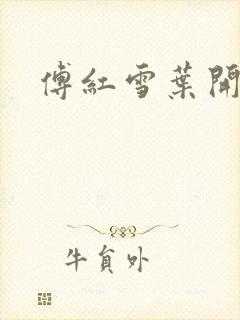 傅紅雪葉開
牛貟外